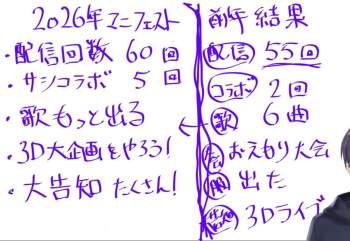 2026年マニフェスト
・配信回数 60回
・サシコラボ 5回
・歌もっと出る
・3D大企画をやろう!
・大告知 たくさん!
前年 結果
配信 55回
コラボ 2回
歌 6曲
おえもり大会
出た
3Dライブ